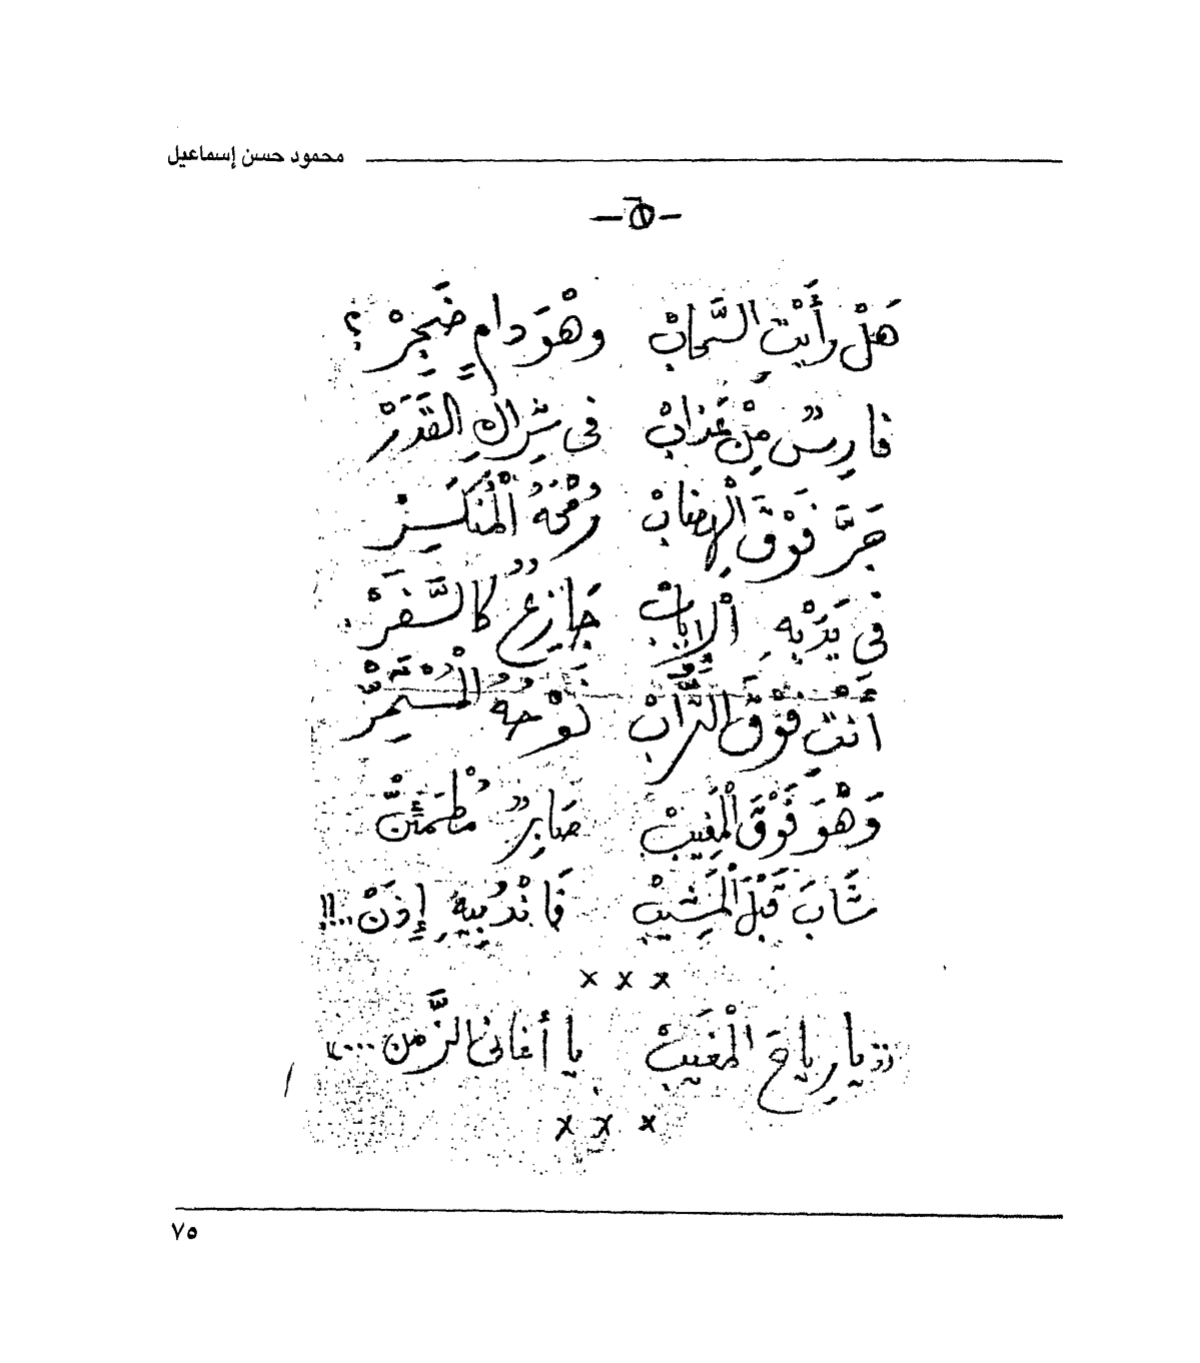 محمود حسن إسماعيل
هَلْ رأَيْتِ السَّحَابْ وهْوَ دامٍ ضَجِرْ ؟
فارِسٌ مِنْ عَذابْ فى شِراكِ القَدَرْ
جَرَّ فَوْقَ الْهِضابْ رُمْحَهُ الْمُنْكَسِرْ
فى يَدَيْهِ الإيابْ جازِعٌ كالسَّفَرْ
أَنْتِ فَوْقَ التُّرَابْ نَوْحُهُ الْمُسْتَمِرّْ
وَهْوَ فَوْقَ الْمَغِيبْ صَابِرٌ مُطْمَئِنّْ
شَابَ قَبْلَ الْمَشِيبْ فَانْدُبِيهِ إِذَنْ ..!!
x x x
«يا رِياحَ الْمَغِيبْ يا أغانى الزَّمن ...»
x x x
٧٥